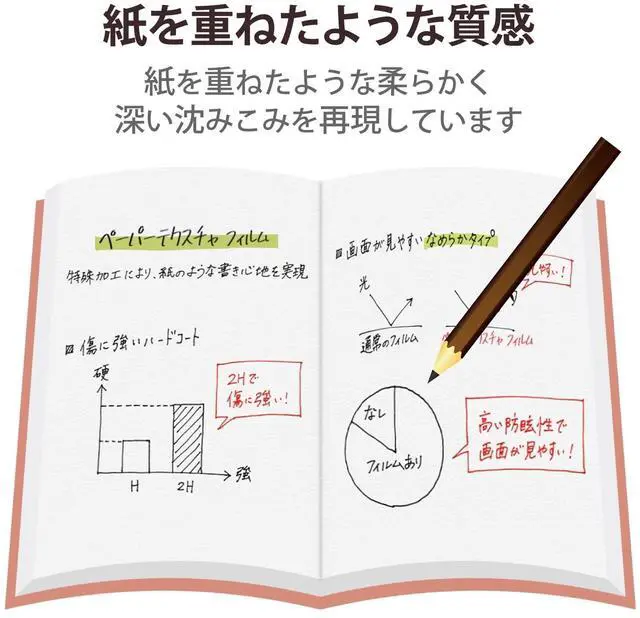 紙を重ねたような質感
紙を重ねたような柔らかく
深い沈みこみを再現しています
ペーパーテクスチャ フィルム
特殊加工により、紙のような書き心地を実現
傷に強いハードコート
硬
2Hで
傷に強い!
H
2H
強
画面が見やすいなめらかタイプ
光
しやすい!
通常のフィルム
テクスチャ フィルム
なし
フィルムあり
高い防眩性で
画面が見やすい!